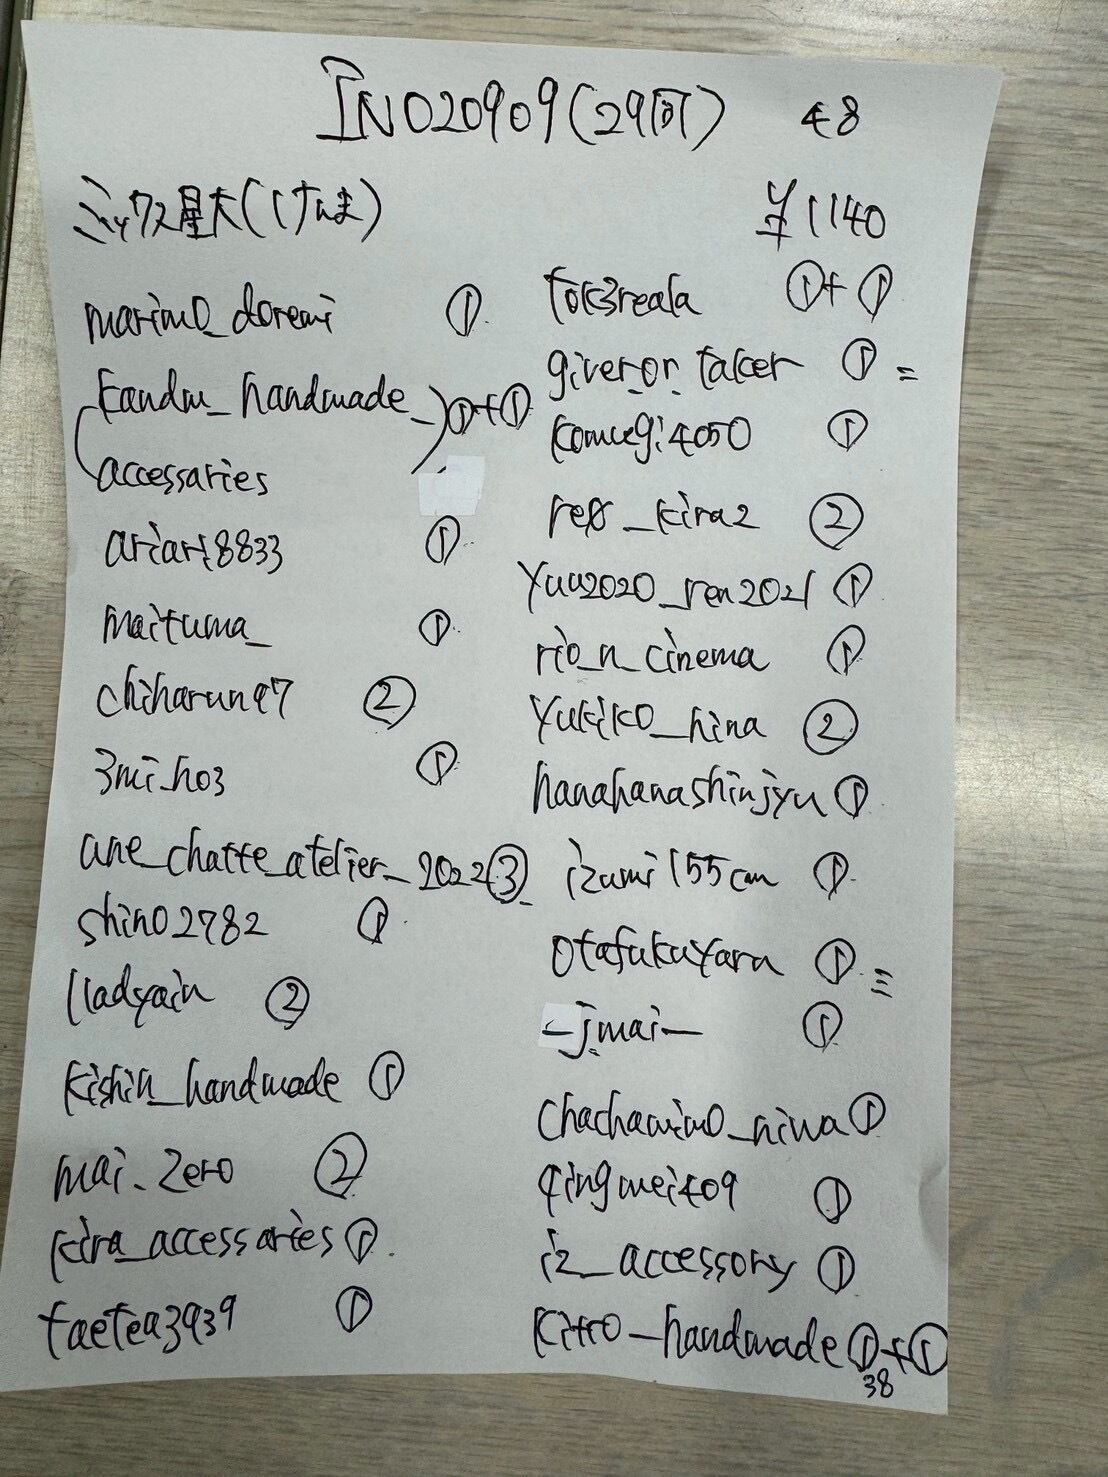 IN020909(29問) 48
ミックス星大(けんま) ¥1140
marimo_doremi ①
(kandm_handmade_) ①+①
accessaries
ariari8833 ①
maituma_ ①
chiharun97 ②
3mi_ho3 ①
une_chatte_atelier_2022 ③
shino2782 ①
lladyain ②
kishin_handmade ①
mai_zero ②
kira_accessaries ①
taetea3939 ①
tok3reala ①+①
giver_or_taker ① =
komugi4050 ①
re8_kira2 ②
yuu2020_ren2021 ①
rio_n_cinema ①
yukiko_hina ②
hanahanashinjyu ①
izumi155cm ①
otafukuyara ① ≡
_jmai_ ①
chachamimo_niwa ①
qingmei409 ①
iz_accessory ①
kitto_handmade ①+①
38